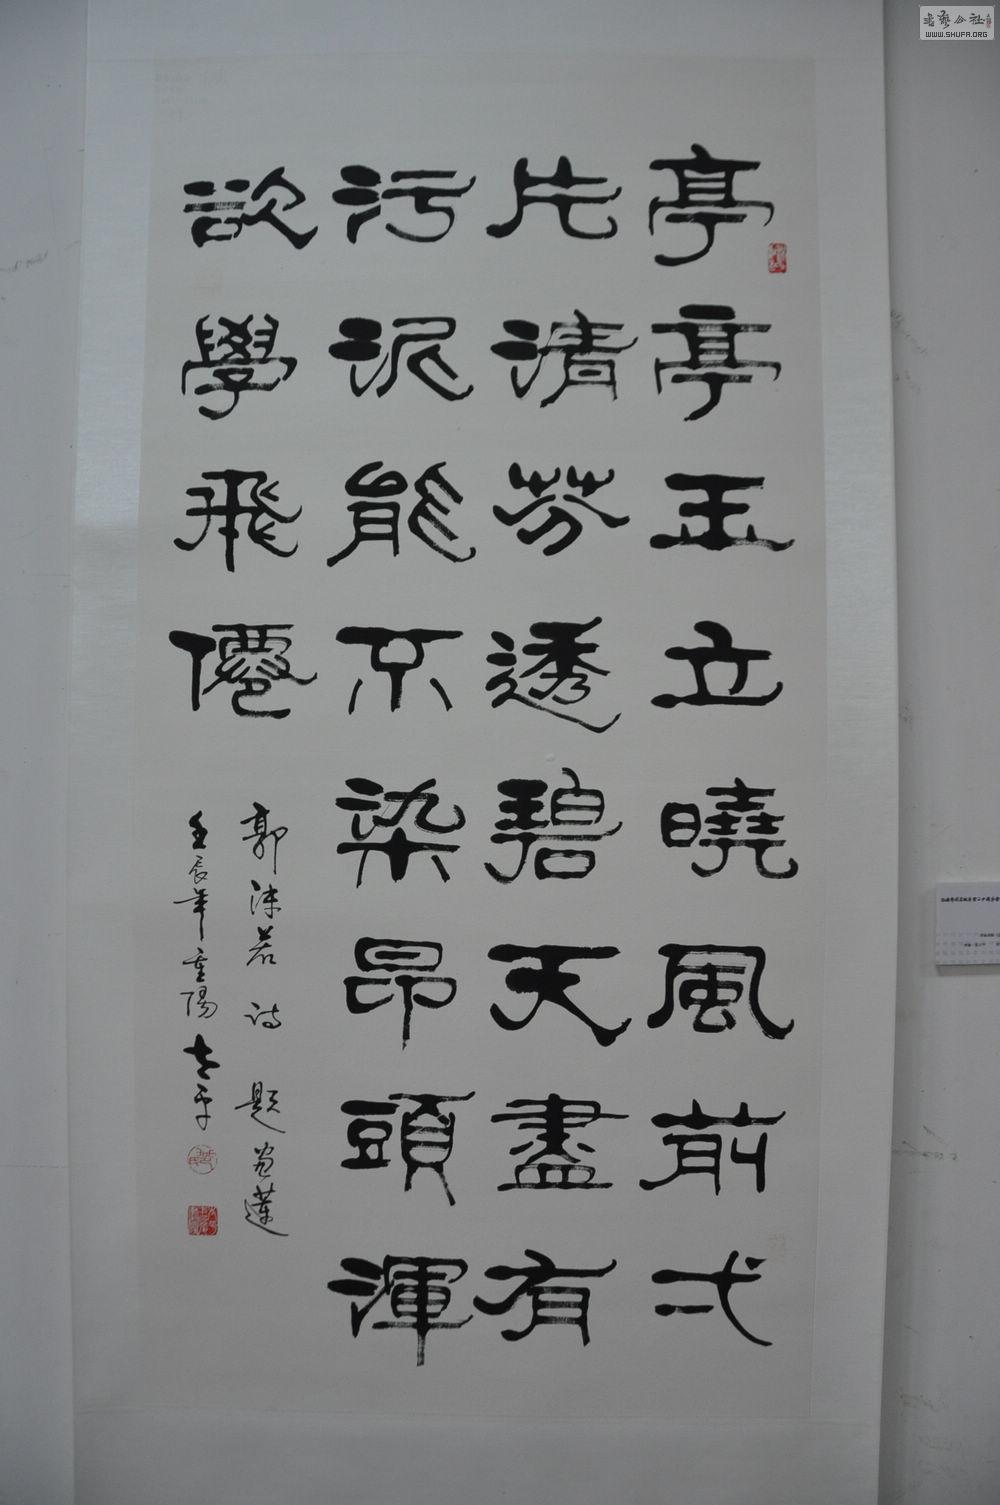 亭亭玉立曉風前弌
片清芬透碧天盡有
污泥能不染昂頭渾
欲學飛僊
郭沫若詩題畫蓮
壬辰年重陽志平
書藝公社
WWW.SHUFA.ORG